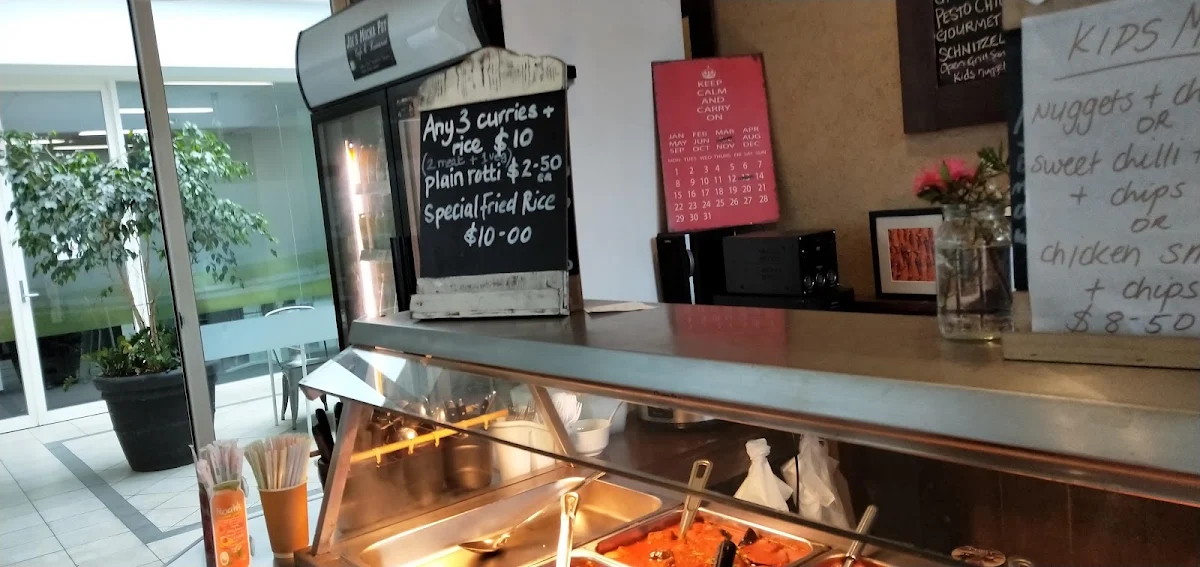 JOE'S MOCHA POT
Any 3 curries +
rice $10
(2 meat + 1 veg)
plain rotti $2-50
ea
Special Fried Rice
$10-00
KEEP
CALM
AND
CARRY
ON
JAN FEB MAR APR
MAY JUN AUG
SEP OCT NOV DEC
MON TUES WED THURS FRI SAT SUN
1 2 3 4 5 6 7
8 9 10 11 12 14
15 16 17 18 19 20 21
22 23 24 25 26 27 28
29 30 31
PESTO
GOURMET
SCHNITZEL
Open Grill
Kids
KIDS
Nuggets +
OR
sweet chilli
+ chips
OR
chicken
+ chips
$8-50